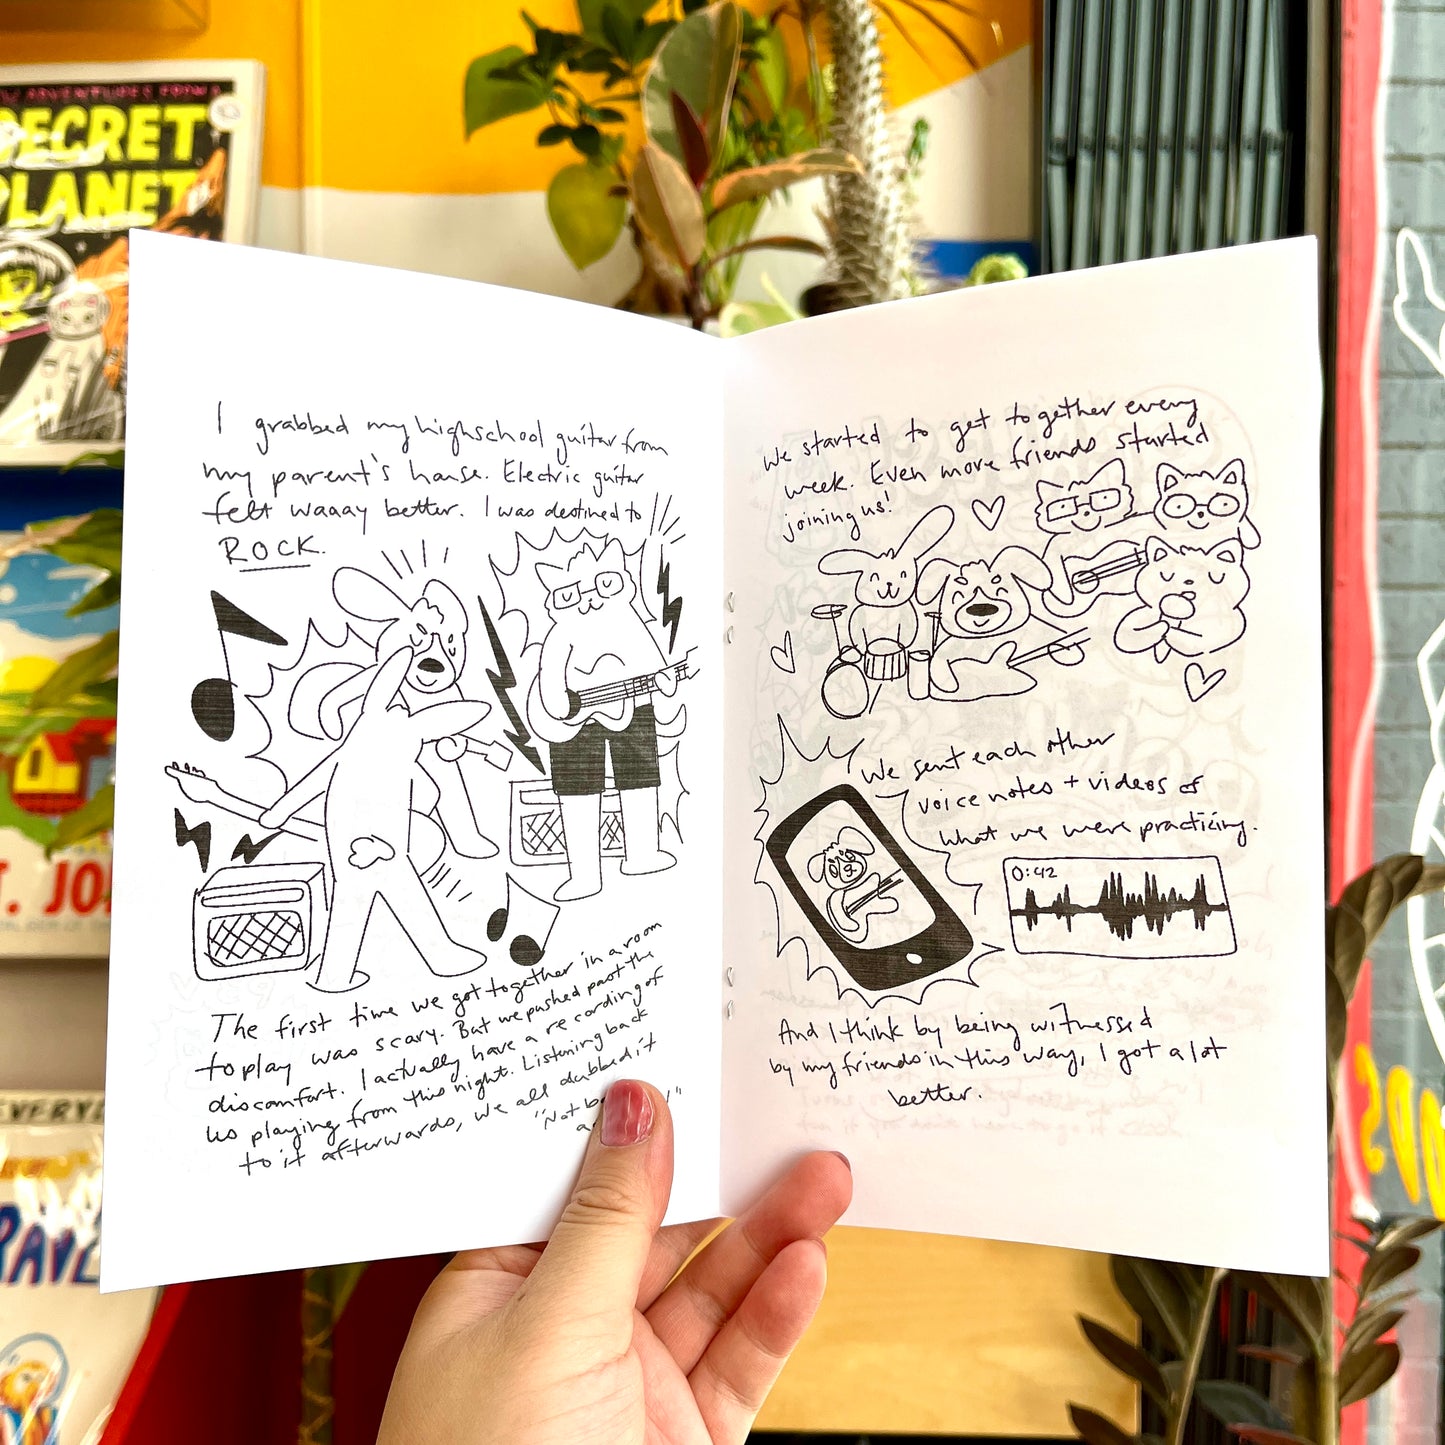 ADVENTURES FROM A
SECRET
PLANET
T. JO
EVERY
RAVE
I grabbed my highschool guitar from
my parent's house. Electric guitar
felt waaay better. I was destined to
ROCK.
The first time we got together in a room
to play was scary. But we pushed past the
discomfort. I actually have a recording of
us playing from this night. Listening back
to it afterwards, we all dubbed it
"Not
We started to get together every
week. Even more friends started
joining us!
We sent each other
voice notes + videos of
what we were practicing.
0:42
And I think by being witnessed
by my friends in this way, I got a lot
better.